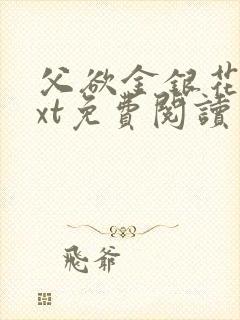 父欲金銀花
xt免費閱讀
飛爺